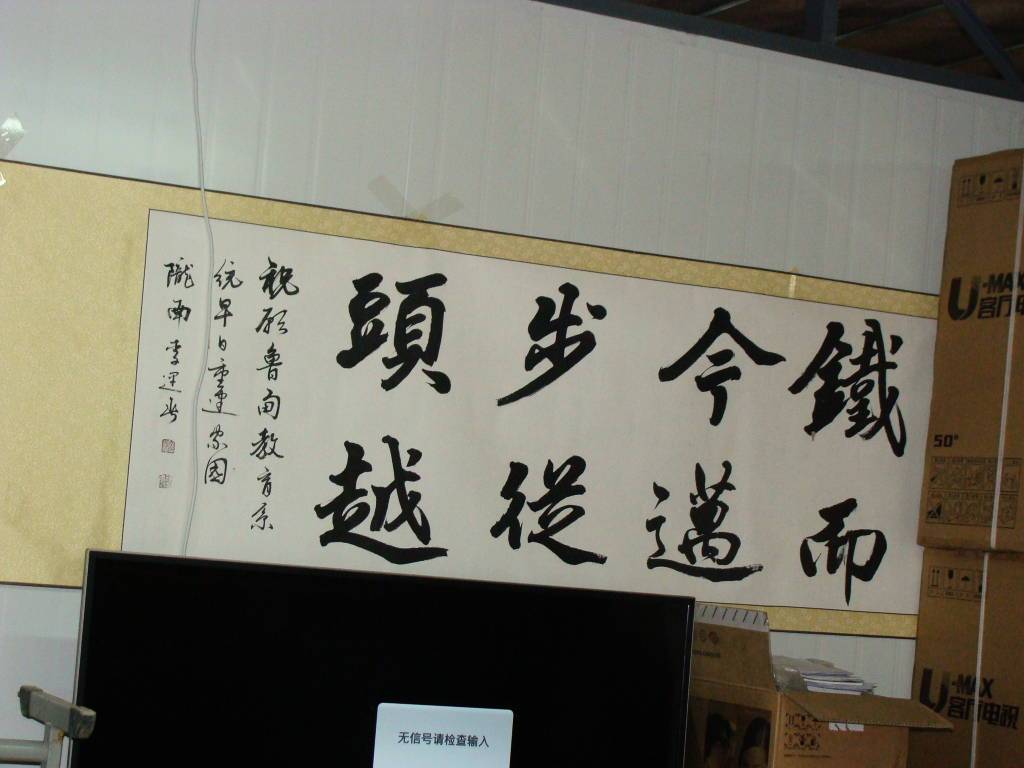 鐵而
今邁
步從
頭越
祝願魯甸教育系
統早日重建家園
隴南李運
U-MAX
客厅电
50"
U-MAX
客厅电视
无信号请检查输入